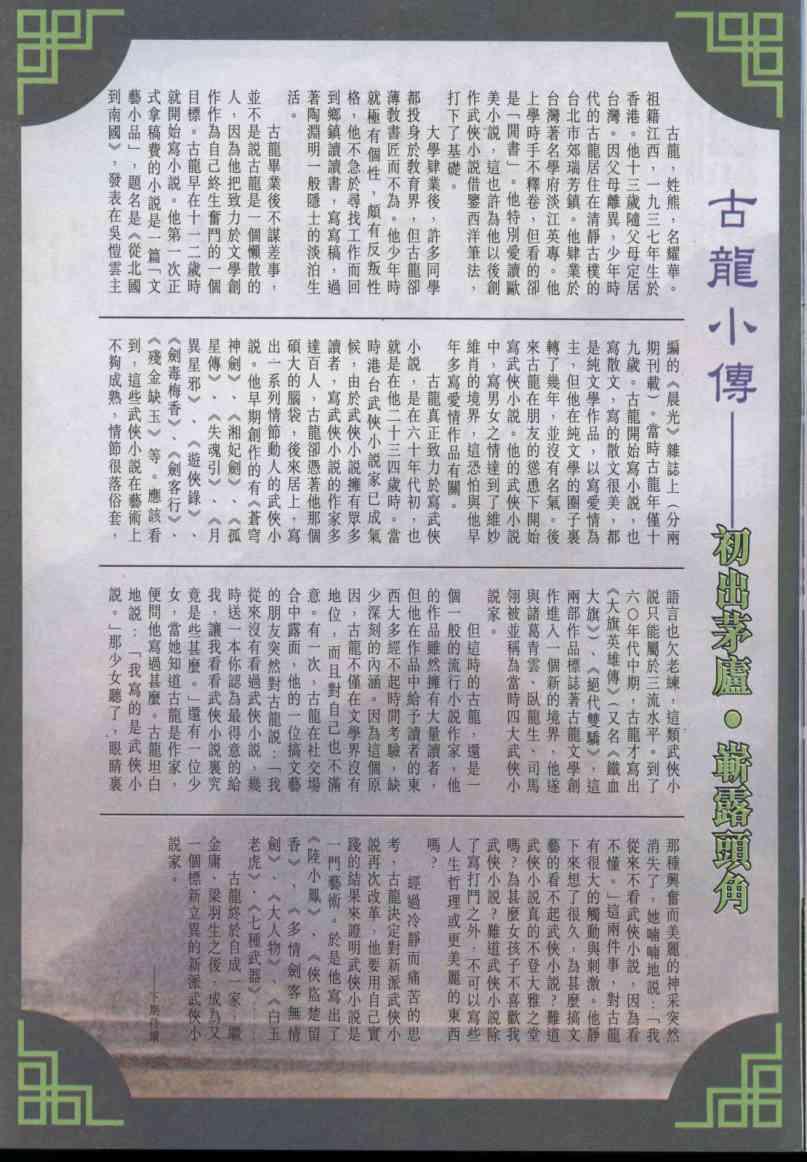 古龍小傳——初出茅廬・嶄露頭角
古龍，姓熊，名耀華。
祖籍江西，一九三七年生於
香港。他十三歲隨父母定居
台灣。因父母離異，少年時
代的古龍居住在清靜古樸的
台北市郊瑞芳鎮。他肄業於
台灣著名學府淡江英專。他
上學時手不釋卷，但看的卻
是「閒書」。他特別愛讀歐
美小說，這也許為他以後創
作武俠小說借鑒西洋筆法，
打下了基礎。
大學肄業後，許多同學
都投身於教育界，但古龍卻
薄教書匠而不為。他少年時
就極有個性，頗有反叛性
格，他不急於尋找工作而回
到鄉鎮讀讀書，寫寫稿，過
著陶淵明一般隱士的淡泊生
活。
古龍畢業後不謀差事，
並不是說古龍是一個懶散的
人，因為他把致力於文學創
作作為自己終生奮鬥的一個
目標。古龍早在十一二歲時
就開始寫小說。他第一次正
式拿稿費的小說是一篇「文
藝小品」，題名是《從北國
到南國》，發表在吳愷雲主
編的《晨光》雜誌上（分兩
期刊載）。當時古龍年僅十
九歲。古龍開始寫小說，也
寫散文，寫的散文很美，都
是純文學作品，以寫愛情為
主，但他在純文學的圈子裏
轉了幾年，並沒有名氣。後
來古龍在朋友的慫恿下開始
寫武俠小說。他的武俠小說
中，寫男女之情達到了維妙
維肖的境界，這恐怕與他早
年多寫愛情作品有關。
古龍真正致力於寫武俠
小說，是在六十年代初，也
就是在他二十三四歲時。當
時港台武俠小說家已成氣
候，由於武俠小說擁有眾多
讀者，寫武俠小說的作家多
達百人，古龍卻憑著他那個
碩大的腦袋，後來居上，寫
出一系列情節動人的武俠小
說。他早期創作的有《蒼穹
神劍》、《湘妃劍》、《孤
星傳》、《失魂引》、《月
異星邪》、《遊俠錄》、
《劍毒梅香》、《劍客行》、
《殘金缺玉》等。應該看
到，這些武俠小說在藝術上
不夠成熟，情節很落俗套，
語言也欠老練，這類武俠小
說只能屬於三流水平。到了
六○年代中期，古龍才寫出
《大旗英雄傳》（又名《鐵血
大旗》）、《絕代雙驕》，這
兩部作品標誌著古龍文學創
作進入一個新的境界，他遂
與諸葛青雲、臥龍生、司馬
翎被並稱為當時四大武俠小
說家。
但這時的古龍，還是一
個一般的流行小說作家，他
的作品雖然擁有大量讀者，
但他在作品中給予讀者的東
西大多經不起時間考驗，缺
少深刻的內涵。因為這個原
因，古龍不僅在文學界沒有
地位，而且對自己也不滿
意。有一次，古龍在社交場
合中露面，他的一位搞文藝
的朋友突然對古龍說：「我
從來沒有看過武俠小說，幾
時送一本你認為最得意的給
我，讓我看看武俠小說裏究
竟是些甚麼。」還有一位少
女，當她知道古龍是作家，
便問他寫過甚麼。古龍坦白
地說：「我寫的是武俠小
說。」那少女聽了，眼睛裏
那種興奮而美麗的神采突然
消失了，她喃喃地說：「我
從來不看武俠小說，因為看
不懂。」這兩件事，對古龍
有很大的觸動與刺激。他靜
下來想了很久，為甚麼搞文
藝的看不起武俠小說？難道
武俠小說真的不登大雅之堂
嗎？為甚麼女孩子不喜歡我
武俠小說？難道武俠小說除
了寫打鬥之外，不可以寫些
人生哲理或更美麗的東西
嗎？
經過冷靜而痛苦的思
考，古龍決定對新派武俠小
說再次改革，他要用自己實
踐的結果來證明武俠小說是
一門藝術。於是他寫出了
《陸小鳳》、《俠盜楚留
香》、《多情劍客無情
劍》、《大人物》、《白玉
老虎》、《七種武器》……
古龍終於自成一家，繼
金庸、梁羽生之後，成為又
一個標新立異的新派武俠小
說家。
——下期待續